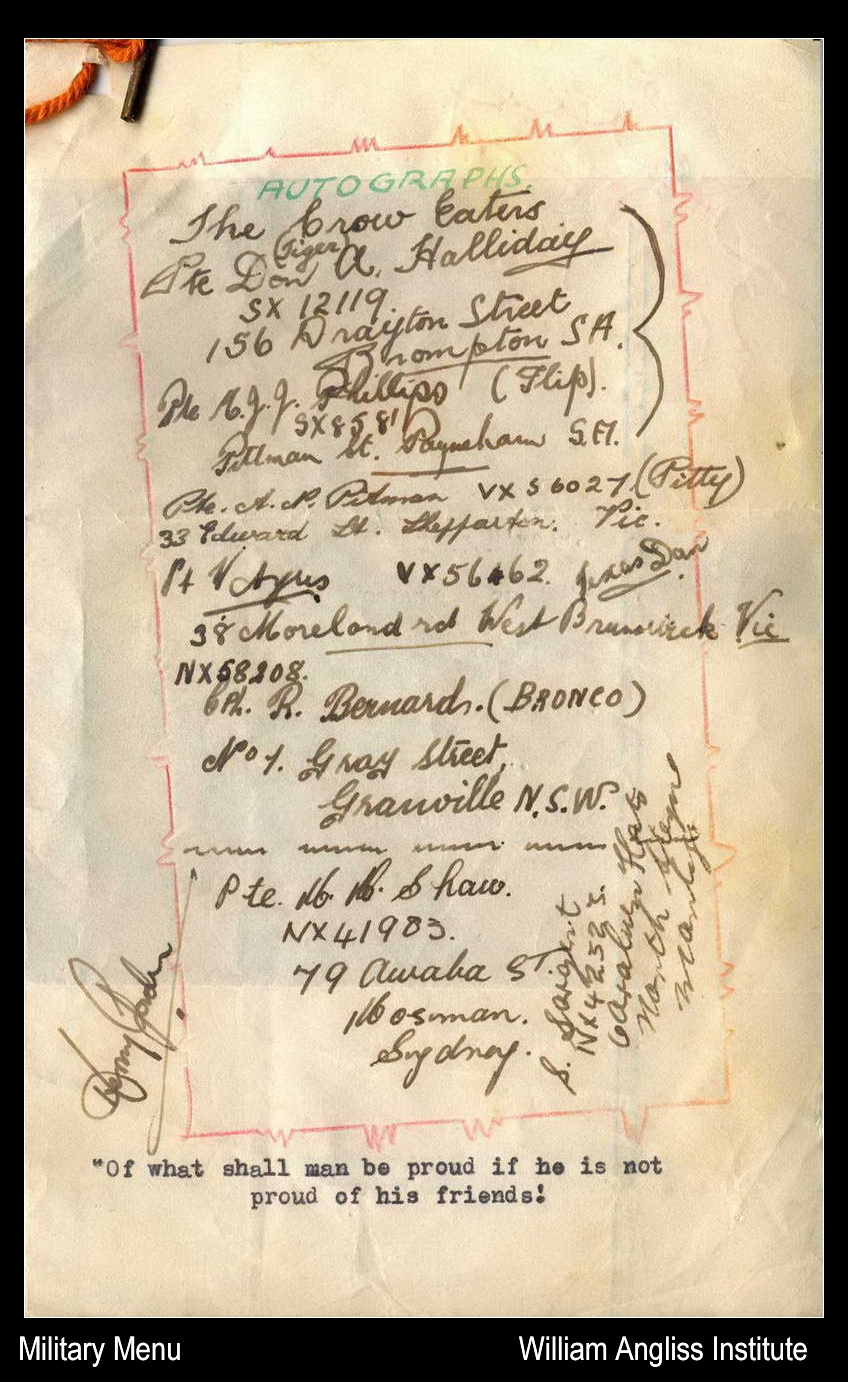 AUTOGRAPHS
The Crow Eaters
(Tiger)
Pte Don A. Halliday
SX 12119.
156 Drayton Street
Brompton SA.
Pte M.J.J. Phillips (Flip).
SX8581
Pittman St. Payneham S.A.
Pte. A. N. Pitman VX 56027 (Pitty)
33 Edward St. Shepparton. Vic.
Pt V Ayres VX56462. Dan
38 Moreland rd West Brunswick Vic
NX58208.
Cpl. R. Bernards. (BRONCO)
No 1. Gray Street,
Granville N.S.W.
Pte. M. M. Shaw.
NX41983.
79 Awaba ST
Mosman.
Sydney.
S. Sargent
Flats
North
Manly
"Of what shall man be proud if he is not
proud of his friends!
Military Menu
William Angliss Institute